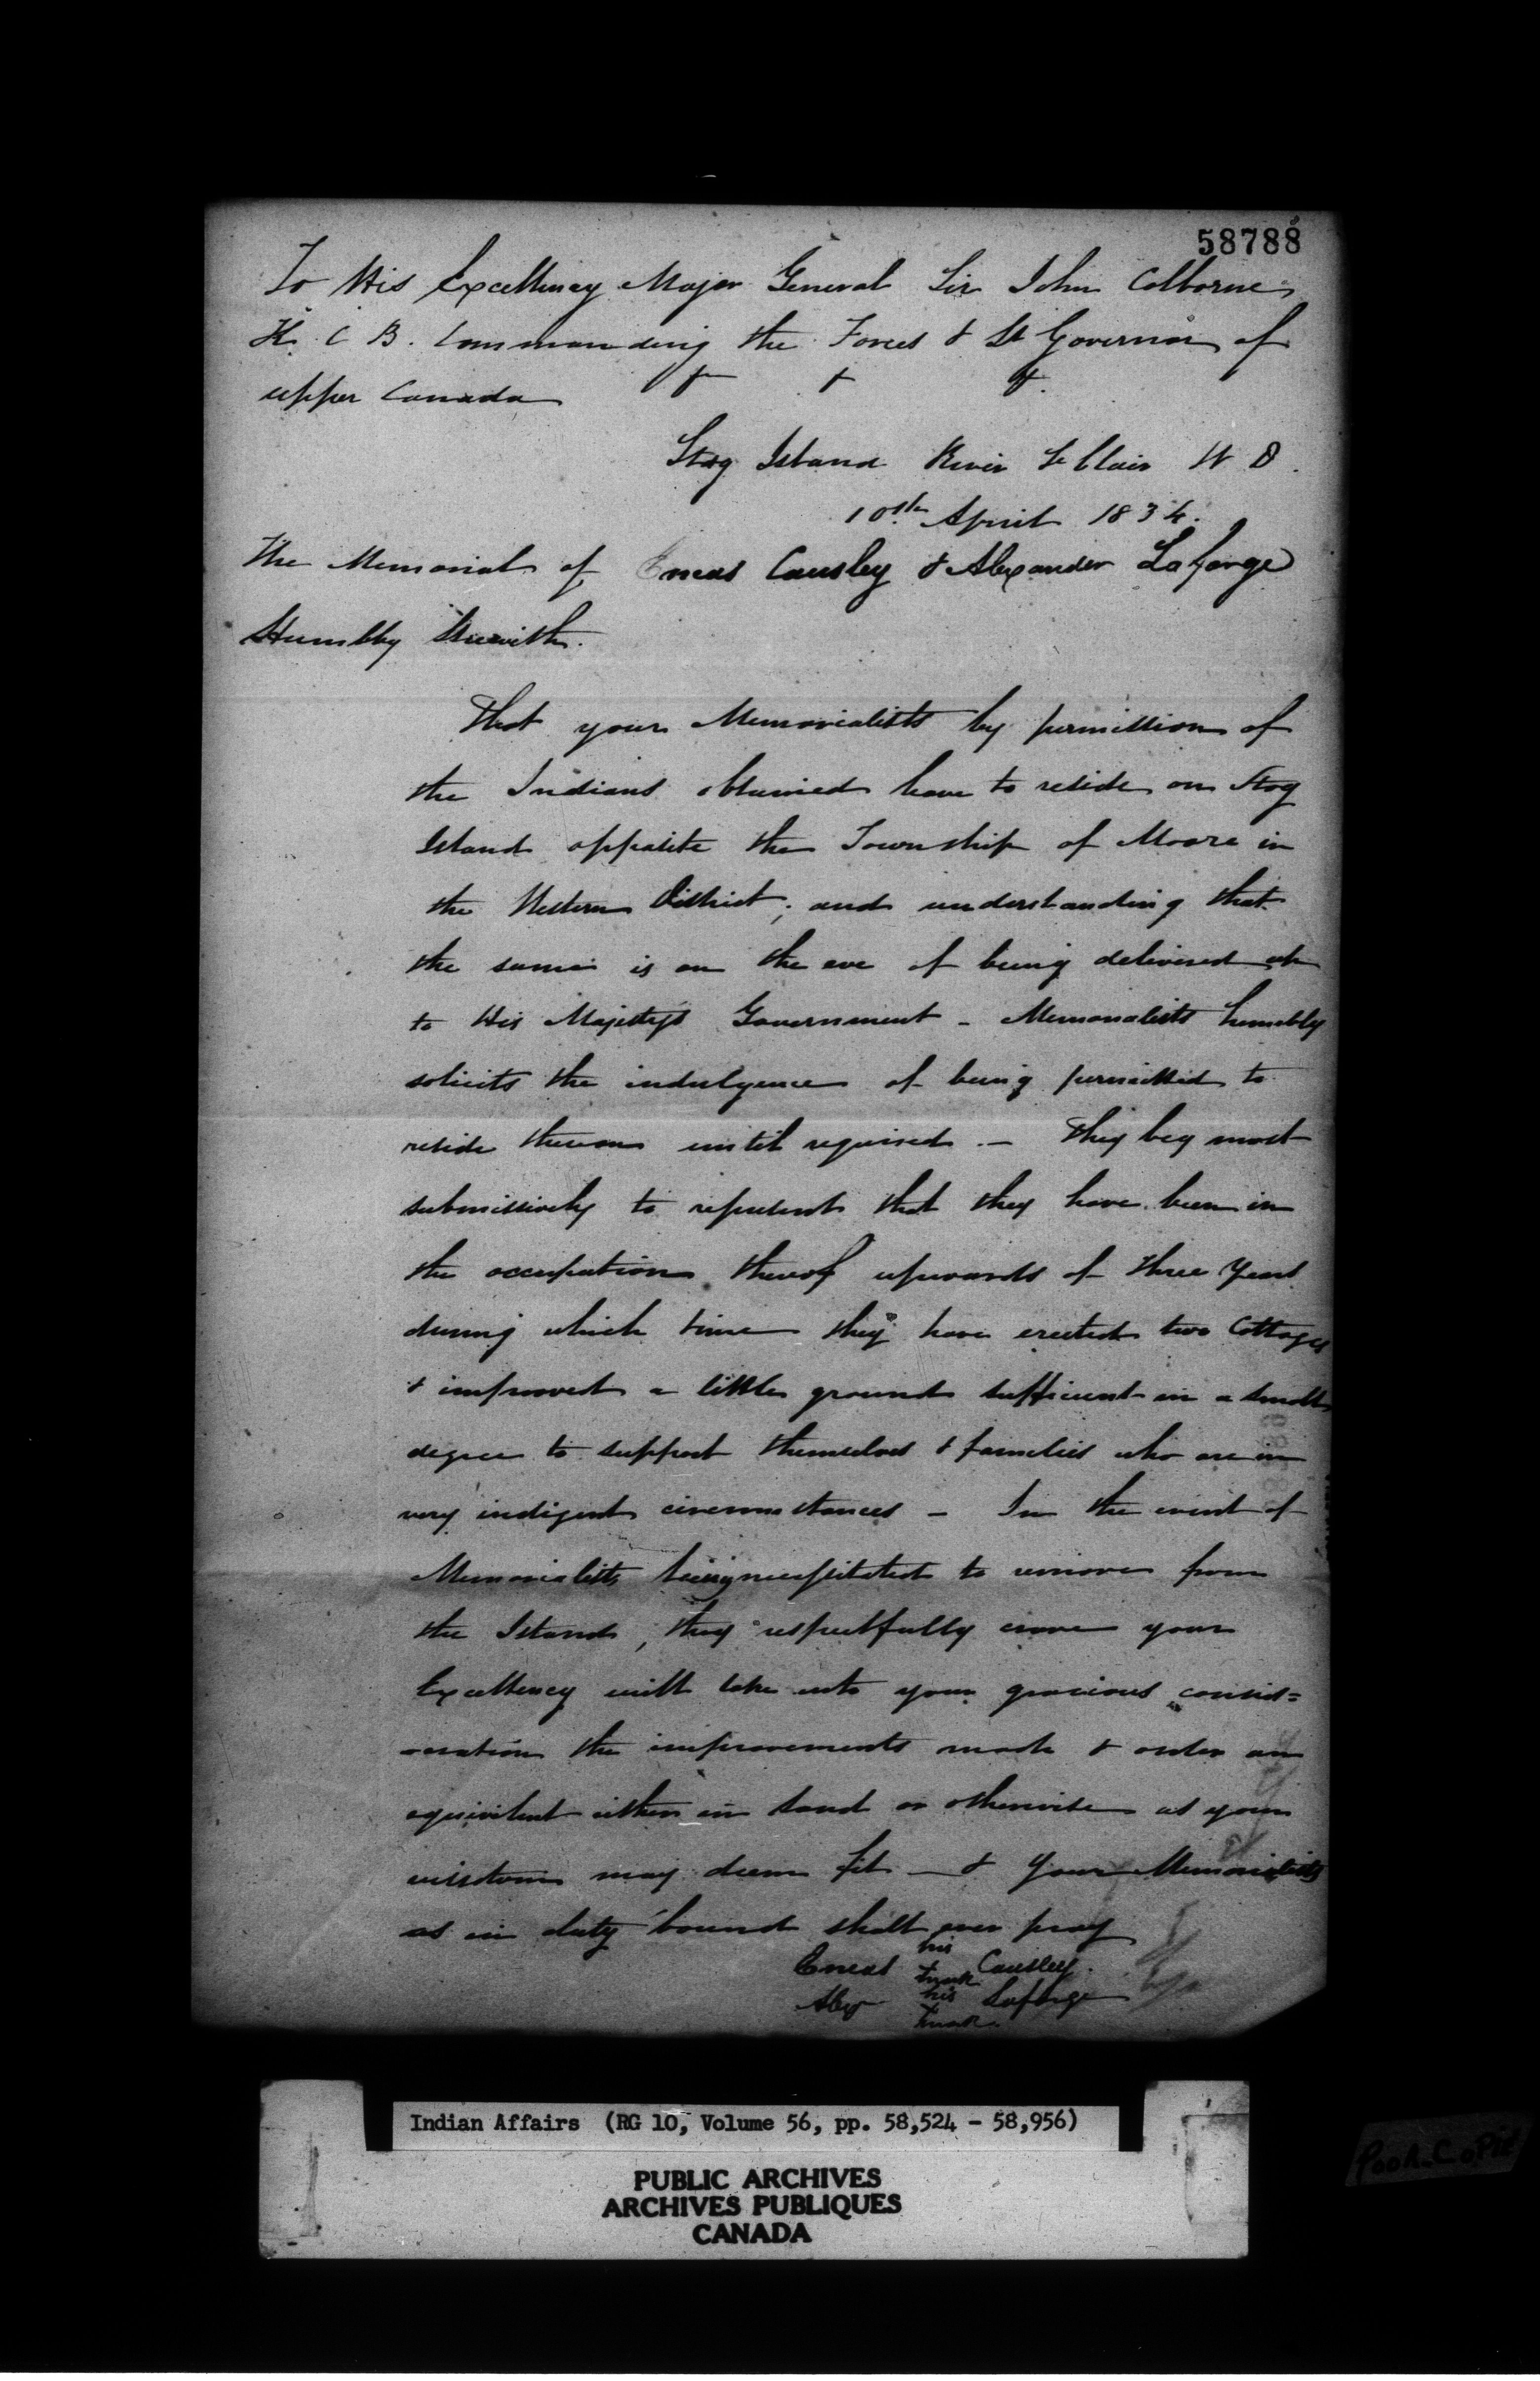 58788
To His Excellency Major General Sir John Colborne
K. C B. Commanding the Forces & Lt Governor of
upper Canada & & &.
Stag Island River St Clair W D.
10th April 1834.
The Memorial of Eneas Causley & Alexander Laforge
Humbly Sheweth.
That your Memorialists by permission of
the Indians obtained leave to reside on Stag
Island opposite the Township of Moore in
the Western District; and understanding that
the same is on the eve of being delivered
to His Majestys Government - Memorialists humbly
solicits the indulgence of being permitted to
reside thereon until required. - They beg most
submissively to represent that they have been in
the occupation thereof upwards of three Years
during which time they have erected two Cottages
& improved a little ground sufficient in a small
degree to support themselves & families who are in
very indigent circumstances - In the event of
Memorialists being necessitated to remove from
the Island, they respectfully crave your
Excellency will take into your gracious consid=
-eration the improvements made & order an
equivilent either in Land or otherwise as your
wisdom may deem fit - & Your Memorialists
as in duty bound shall ever pray
his
Eneas + Causley.
mark
his
Alex + Laforge
mark.
Indian Affairs (RG 10, Volume 56, pp. 58,524 - 58,956)
PUBLIC ARCHIVES
ARCHIVES PUBLIQUES
CANADA
Poor Copie